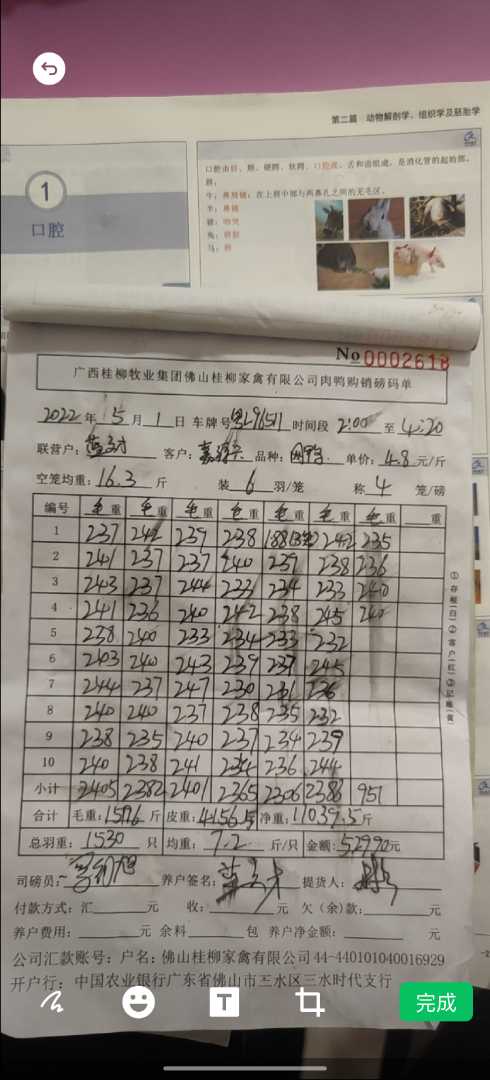 第二篇 动物解剖学、组织学及胚胎学
1
口腔
口腔由唇、颊、硬腭、软腭、口腔底、舌和齿组成，是消化管的起始部。
唇：
牛：鼻唇镜：在上唇中部与两鼻孔之间的无毛区。
羊：鼻镜
猪：吻突
兔：唇裂
马：唇
No 0002618
广西桂柳牧业集团佛山桂柳家禽有限公司肉鸭购销磅码单
2022年 5月 1日 车牌号 L96511 时间段 2:00 至 4:20
联营户： 客户： 品种： 单价：4.8元/斤
空笼均重：16.3斤 装 6 羽/笼 称 4 笼/磅
编号 毛重 毛重 毛重 毛重 毛重 毛重 毛重 重
1 237 242 239 238 188 242 235
2 241 237 237 240 239 238 236
3 243 237 244 233 234 233 240
4 241 236 240 242 238 245 240
5 238 240 233 234 233 232
6 2403 240 243 239 237 245
7 244 237 247 230 231 236
8 240 240 237 238 235 232
9 238 235 240 237 234 239
10 240 238 241 234 236 244
小计 2405 2382 2401 2365 2306 2388 951
合计 毛重：15196斤 皮重：4156.5 净重：11039.5斤
总羽重：1530只 均重：7.2斤/只 金额：52990元
司磅员： 养户签名： 提货人：
付款方式：汇 元 收： 元 欠（余）款： 元
养户费用： 元 余料 包 养户净金额： 元
公司汇款账号：户名：佛山桂柳家禽有限公司44-440101040016929
开户行：中国农业银行广东省佛山市三水区三水时代支行
①存根（白）②客户（红）③记账（黄）
T
完成